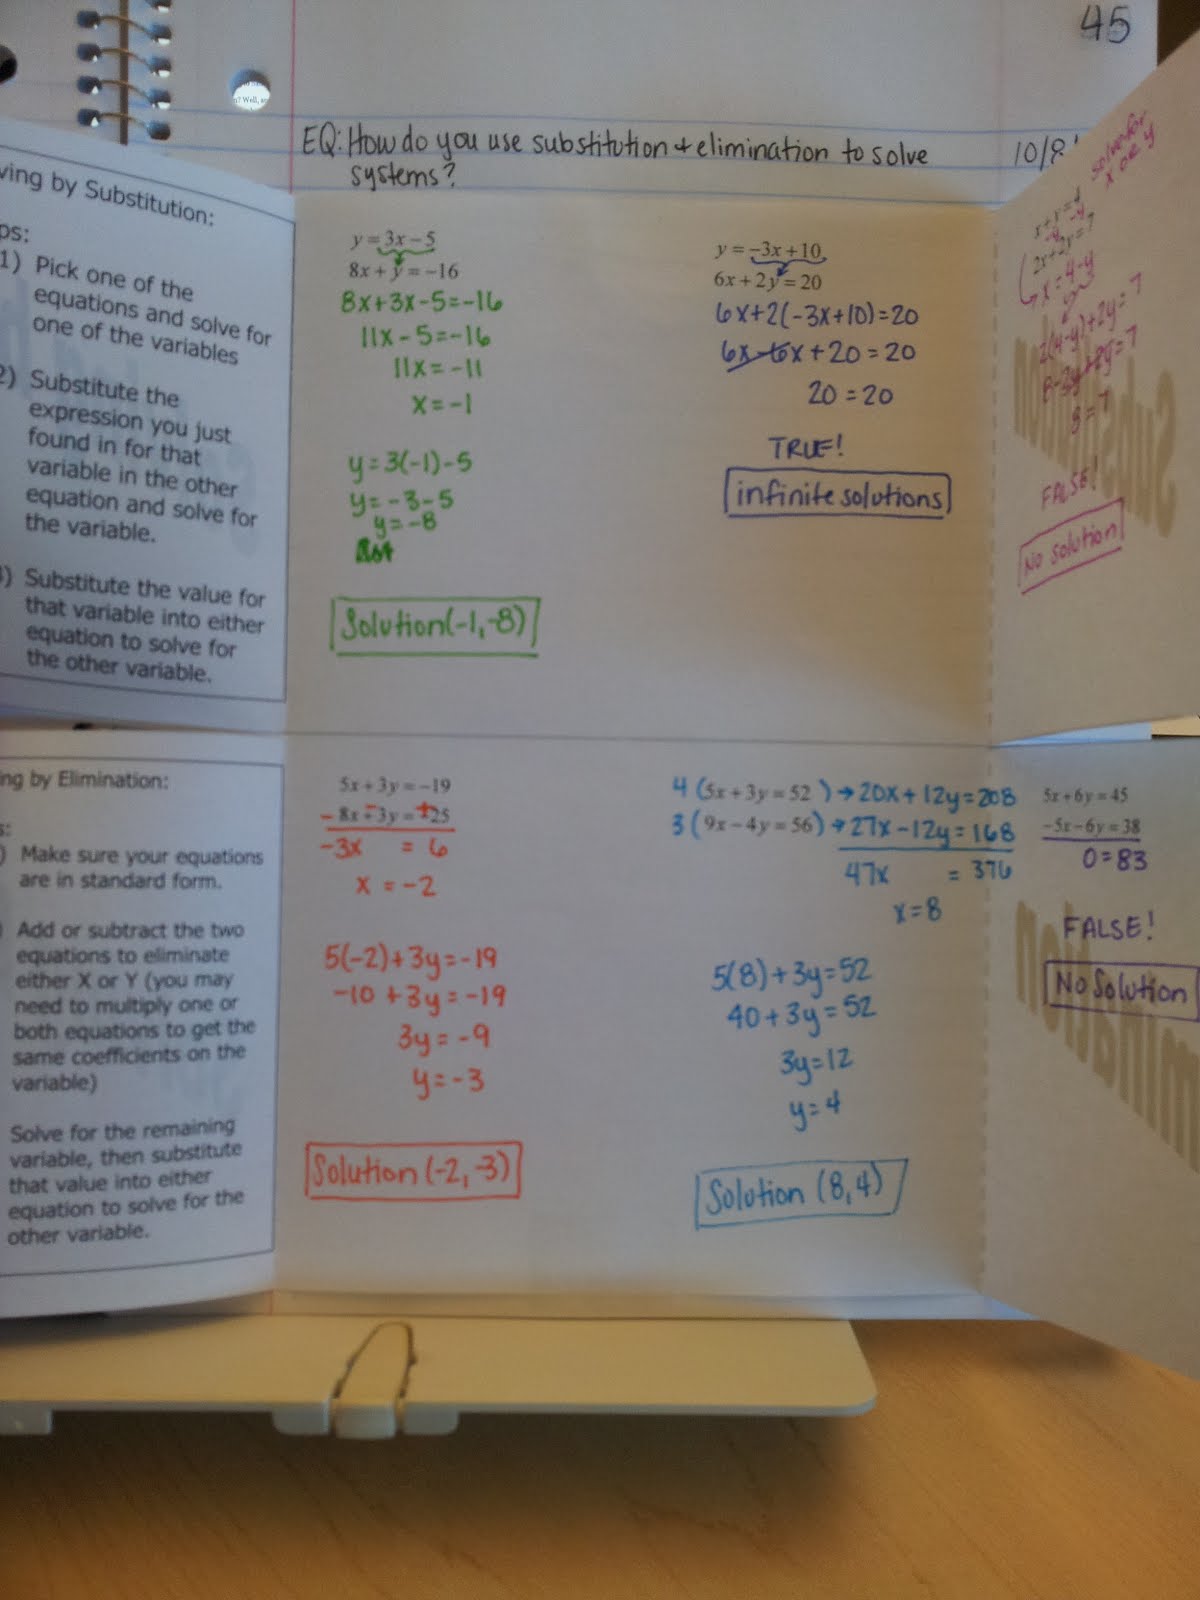 45
EQ: How do you use substitution + elimination to solve
systems?
10/8
ving by Substitution:
ps:
1) Pick one of the
equations and solve for
one of the variables
2) Substitute the
expression you just
found in for that
variable in the other
equation and solve for
the variable.
) Substitute the value for
that variable into either
equation to solve for
the other variable.
y = 3x − 5
8x + y = −16
8x+3x-5=-16
11x-5=-16
11x=-11
x=-1
y=3(-1)-5
y=-3-5
y=-8
Solution(-1,-8)
y = −3x + 10
6x + 2y = 20
6x+2(-3x+10)=20
6x-6x+20=20
20=20
TRUE!
infinite solutions
solve for
x or y
x + y = 4
-y -y
2x + 2y = 7
x=4-y
2(4-y)+2y=7
8-2y+2y=7
8=7
FALSE!
No solution
Substitution
ing by Elimination:
s:
) Make sure your equations
are in standard form.
Add or subtract the two
equations to eliminate
either X or Y (you may
need to multiply one or
both equations to get the
same coefficients on the
variable)
Solve for the remaining
variable, then substitute
that value into either
equation to solve for the
other variable.
5x + 3y = −19
- 8x - 3y = +25
-3x = 6
x = -2
5(-2)+3y=-19
-10+3y=-19
3y=-9
y=-3
Solution (-2,-3)
4 (5x + 3y = 52 ) → 20x+12y=208
3 (9x − 4y = 56) → 27x-12y=168
47x = 376
x=8
5(8)+3y=52
40+3y=52
3y=12
y=4
Solution (8,4)
5x + 6y = 45
−5x − 6y = 38
0=83
FALSE!
No Solution